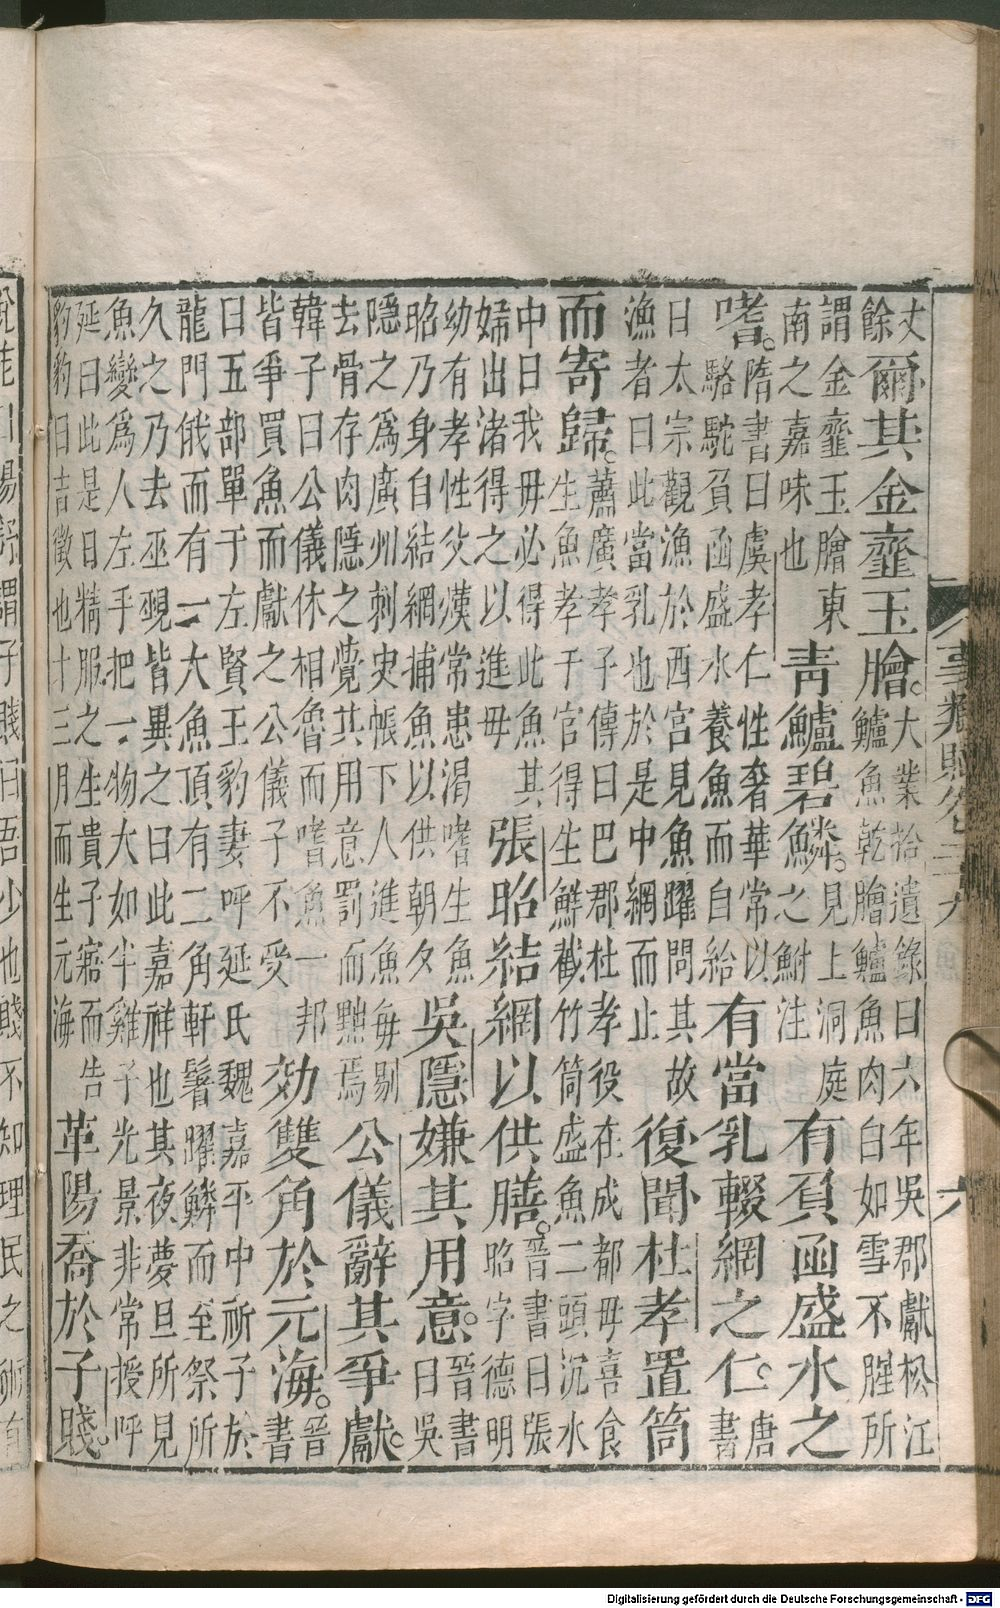 事類賦卷二十九　六
丈
餘
爾其金虀玉膾。
大業拾遺錄曰六年吳郡獻松江
鱸魚乾膾鱸魚肉白如雪不腥所
謂金虀玉膾東
南之嘉味也
青鱸碧鱗。
見上洞庭
之鮒注
有負函盛水之
嗜。
隋書曰虞孝仁性奢華常以
駱駝負函盛水養魚而自給
有當乳輟網之仁。
唐
書
曰太宗觀漁於西宮見魚躍問其故
漁者曰此當乳也於是中網而止
復聞杜孝置筒
而寄歸。
蕭廣孝子傳曰巴郡杜孝役在成都母喜食
生魚孝于官得生鮮截竹筒盛魚二頭沉水
中曰我母必得此魚其
婦出渚得之以進母
張昭結網以供膳。
晉書曰張
昭字德明
幼有孝性父漢常患渴嗜生魚
昭乃身自結網捕魚以供朝夕
吳隱嫌其用意。
晉書
曰吳
隱之為廣州刺史帳下人進魚每剔
去骨存肉隱之覺其用意罰而黜焉
公儀辭其爭獻。
韓子曰公儀休相魯而嗜魚一邦
皆爭買魚而獻之公儀子不受
効雙角於元海。
晉
書
曰五部單于左賢王豹妻呼延氏魏嘉平中祈子於
龍門俄而有一大魚頂有二角軒鬐曜鱗而至祭所
久之乃去巫覡皆異之曰此嘉祥也其夜夢旦所見
魚變為人左手把一物大如半雞子光景非常授呼
延曰此是日精服之生貴子寤而告
豹豹曰吉徵也十三月而生元海
革陽喬於子賤。
謂子賤曰吾少也賤不知理民之術
Digitalisierung gefördert durch die Deutsche Forschungsgemeinschaft - DFG